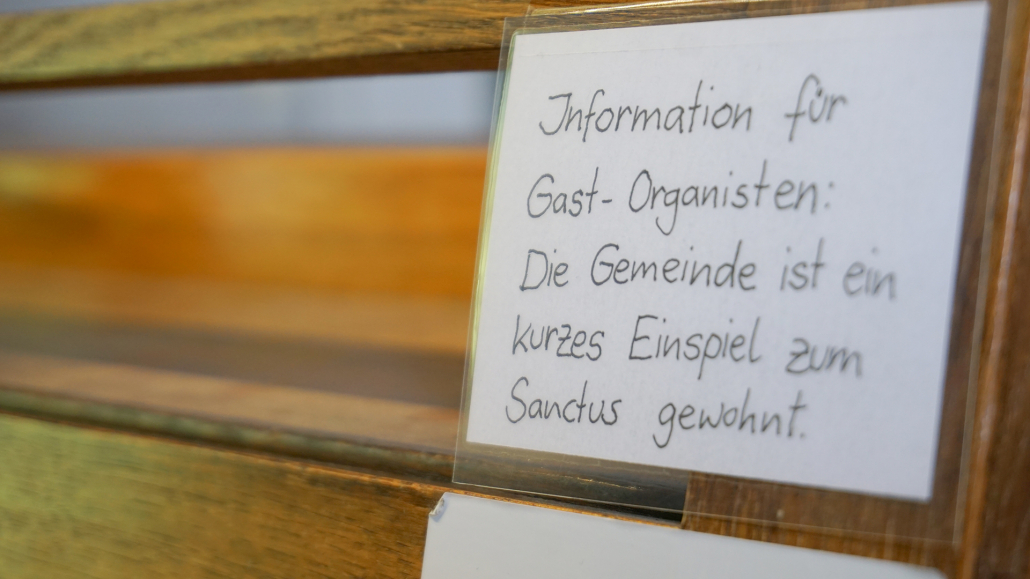 Information für
Gast-Organisten:
Die Gemeinde ist ein
kurzes Einspiel zum
Sanctus gewohnt.